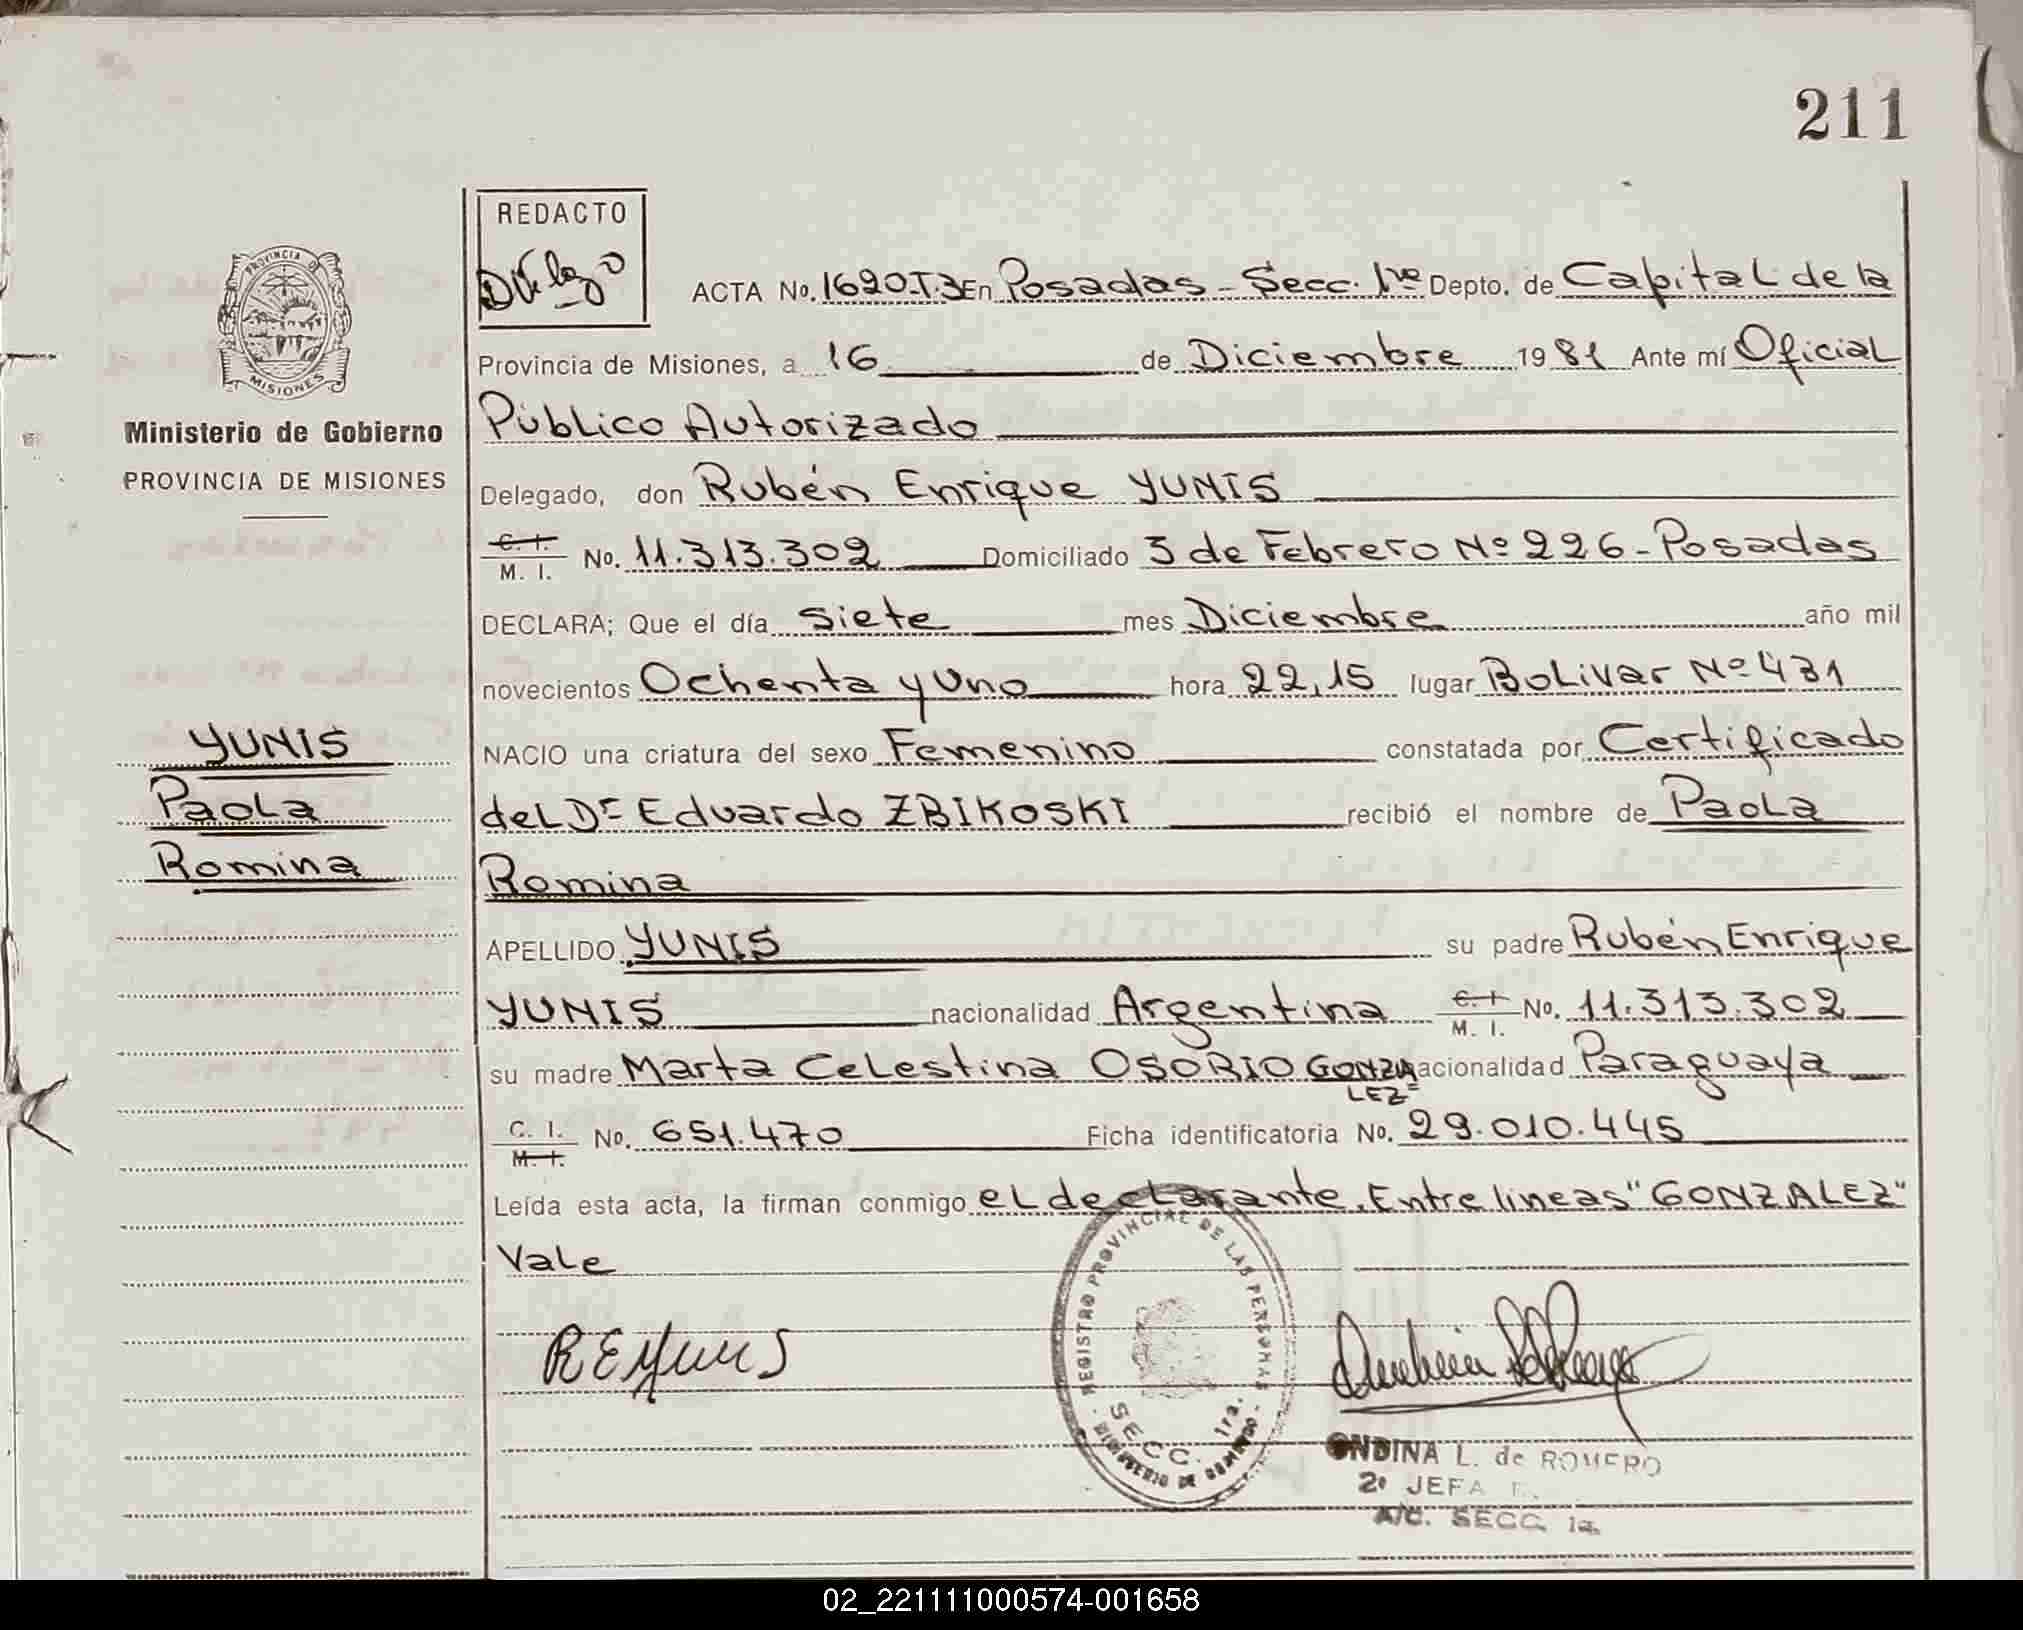 211
REDACTO
PROVINCIA DE
MISIONES
ACTA No. 1620.T.3 En Posadas - Secc. 1ra Depto. de Capital de la
Provincia de Misiones, a 16 de Diciembre 1981 Ante mí Oficial
Público Autorizado
Ministerio de Gobierno
PROVINCIA DE MISIONES
Delegado, don Rubén Enrique YUNIS
C. I.
M. I. No. 11.313.302 Domiciliado 3 de Febrero Nº 226 - Posadas
DECLARA; Que el día siete mes Diciembre año mil
novecientos Ochenta y Uno hora 22,15 lugar Bolivar Nº 431
YUNIS
Paola
Romina
NACIO una criatura del sexo Femenino constatada por Certificado
del Dr Eduardo ZBIKOSKI recibió el nombre de Paola
Romina
APELLIDO YUNIS su padre Rubén Enrique
YUNIS nacionalidad Argentina C. I. M. I. No. 11.313.302
su madre Marta Celestina OSORIO GONZA nacionalidad Paraguaya
LEZ=
C. I.
M. I. No. 651.470 Ficha identificatoria No. 29.010.445
Leída esta acta, la firman conmigo el declarante. Entre lineas "GONZALEZ"
Vale
REYunis
REGISTRO PROVINCIAL DE LAS PERSONAS
SECC. 1ra.
MINISTERIO DE GOBIERNO
ONDINA L. de ROMERO
2º JEFA
A/C. SECC. 1a.
02_221111000574-001658